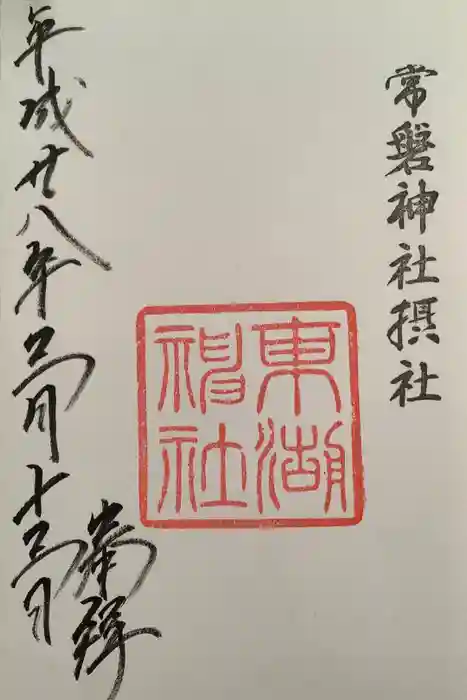 常磐神社摂社
東湖
神社
平成廿八年 月十 日
奉拝